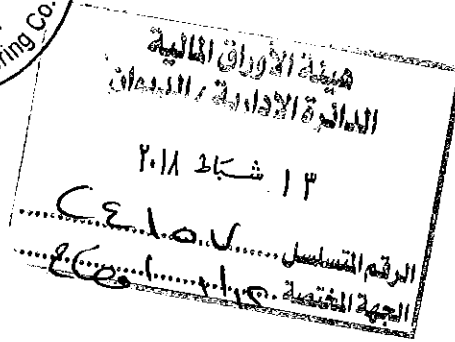 ring Co.
هيئة الأوراق المالية
الدائرة الادارية / الديوان
١٣ شباط ٢٠١٨
الرقم المتسلسل
الجهة المختصة